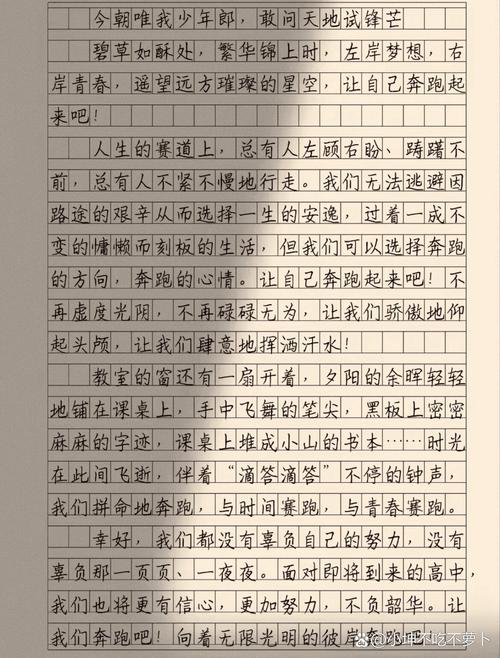 今朝唯我少年郎，敢问天地试锋芒
碧草如酥处，繁华锦上时，左岸梦想，右
岸青春，遥望远方璀璨的星空，让自己奔跑起
来吧！
人生的赛道上，总有人左顾右盼、踌躇不
前，总有人不紧不慢地行走。我们无法逃避因
路途的艰辛从而选择一生的安逸，过着一成不
变的慵懒而刻板的生活，但我们可以选择奔跑
的方向，奔跑的心情。让自己奔跑起来吧！不
再虚度光阴，不再碌碌无为，让我们骄傲地仰
起头颅，让我们肆意地挥洒汗水！
教室的窗还有一扇开着，夕阳的余晖轻轻
地铺在课桌上，手中飞舞的笔尖，黑板上密密
麻麻的字迹，课桌上堆成小山的书本……时光
在此间飞逝，伴着“滴答滴答”不停的钟声，
我们拼命地奔跑，与时间赛跑，与青春赛跑。
幸好，我们都没有辜负自己的努力，没有
辜负那一页页、一夜夜。面对即将到来的高中，
我们也将更有信心，更加努力，不负韶华。让
我们奔跑吧！向着无限光明的彼岸奔跑吧！
小坤不吃不萝卜